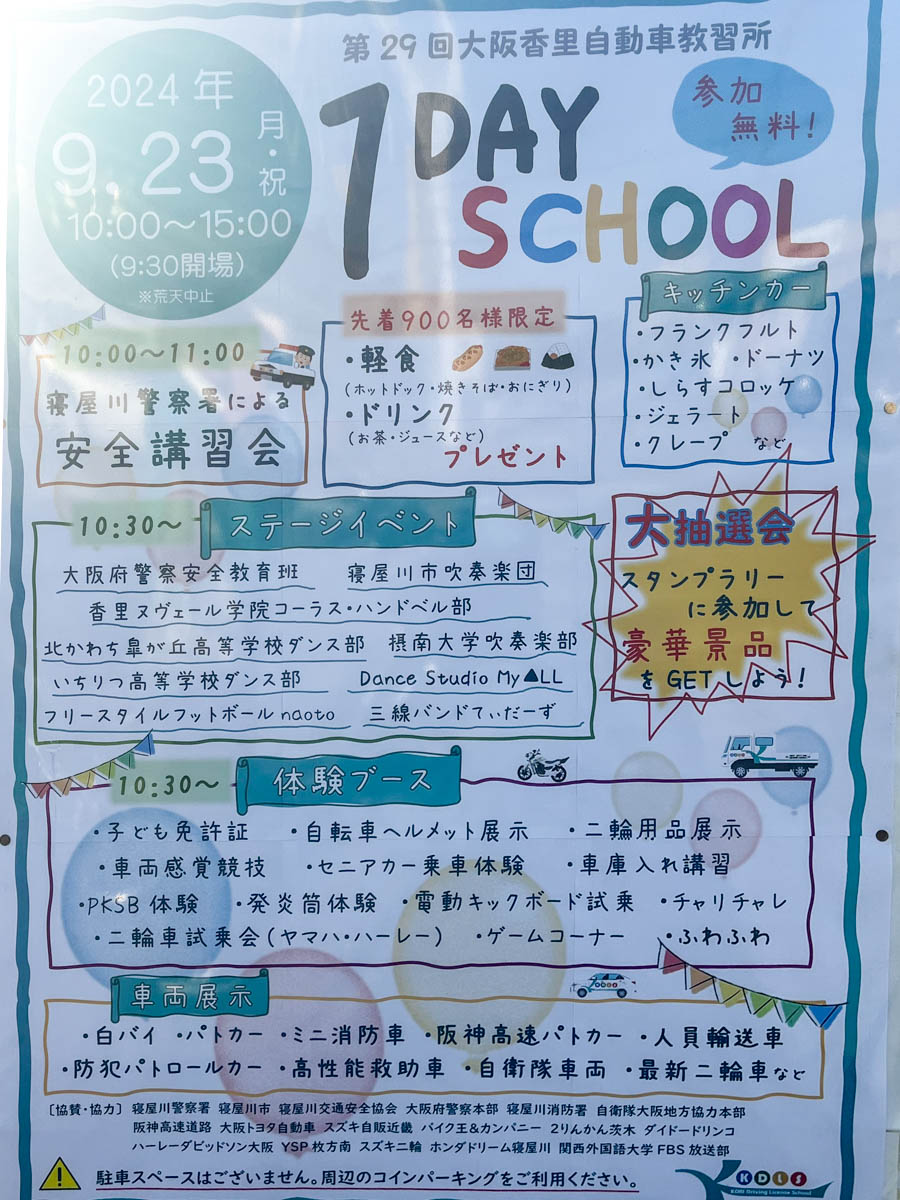 第29回大阪香里自動車教習所
1DAY
SCHOOL
参加
無料!
2024年
9.23月・祝
10:00〜15:00
(9:30開場)
※荒天中止
10:00〜11:00
寝屋川警察署による
安全講習会
先着900名様限定
・軽食
(ホットドック・焼きそば・おにぎり)
・ドリンク
(お茶・ジュースなど)
プレゼント
キッチンカー
・フランクフルト
・かき氷 ・ドーナツ
・しらすコロッケ
・ジェラート
・クレープ など
10:30〜 ステージイベント
大阪府警察安全教育班 寝屋川市吹奏楽団
香里ヌヴェール学院コーラス・ハンドベル部
北かわち皐が丘高等学校ダンス部 摂南大学吹奏楽部
いちりつ高等学校ダンス部 Dance Studio My▲LL
フリースタイルフットボールnaoto 三線バンドてぃだーず
大抽選会
スタンプラリー
に参加して
豪華景品
をGETしよう!
10:30〜 体験ブース
・子ども免許証 ・自転車ヘルメット展示 ・二輪用品展示
・車両感覚競技 ・セニアカー乗車体験 ・車庫入れ講習
・PKSB体験 ・発炎筒体験 ・電動キックボード試乗 ・チャリチャレ
・二輪車試乗会(ヤマハ・ハーレー) ・ゲームコーナー ・ふわふわ
車両展示
・白バイ ・パトカー ・ミニ消防車 ・阪神高速パトカー ・人員輸送車
・防犯パトロールカー ・高性能救助車 ・自衛隊車両 ・最新二輪車など
〔協賛・協力〕寝屋川警察署 寝屋川市 寝屋川交通安全協会 大阪府警察本部 寝屋川消防署 自衛隊大阪地方協力本部
阪神高速道路 大阪トヨタ自動車 スズキ自販近畿 バイク王&カンパニー 2りんかん茨木 ダイドードリンコ
ハーレーダビッドソン大阪 YSP枚方南 スズキ二輪 ホンダドリーム寝屋川 関西外国語大学FBS放送部
駐車スペースはございません。周辺のコインパーキングをご利用ください。
KDLS
KORI Driving License School